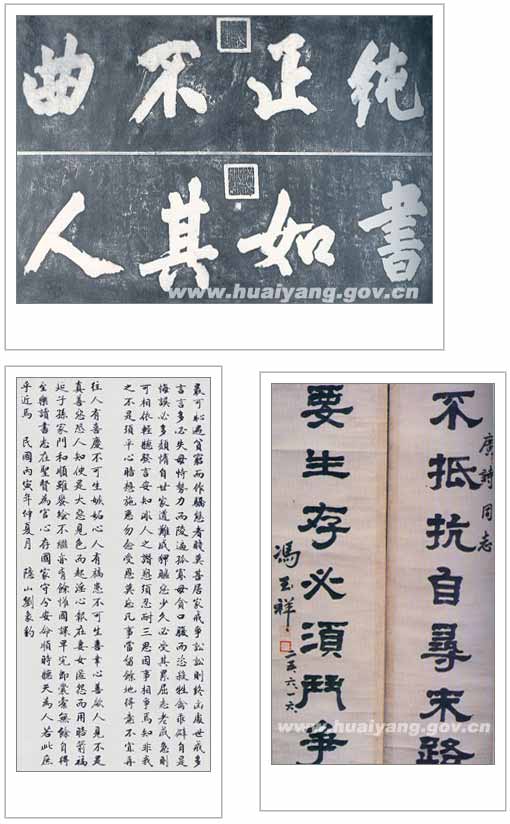 纯正不曲
書如其人
www.huaiyang.gov.cn
最可恥遇貧窮而作驕態者賤莫甚居家戒爭訟訟則終凶處世戒多
言言多必失毋恃勢力而陵逼孤寡毋貪口腹而恣殺牲禽乖僻自是
悔誤必多頹惰自甘家道難成狎暱惡少久必受其累屈志老成急則
可相依輕聽發言安知非人之譖愬須忍耐三思因事相爭焉知非我
之不是須平心暗想施惠勿念受恩莫忘凡事當留餘地得意不宜再
往人有喜慶不可生嫉妬心人有禍患不可生喜幸心善欲人見不是
真善惡恐人知便是大惡見色而起淫心報在妻女匿怨而用暗箭禍
延子孫家門和順雖饔飧不繼亦有餘惟國課早完即囊橐無餘自得
至樂讀書志在聖賢為官心存國家守分安命順時聽天為人若此庶
乎近焉 民國丙寅年仲夏月 隱山劉家豹
廣詩同志
不抵抗自尋末路
要生存必須鬥爭
馮玉祥 二五六一六
www.huaiyang.gov.cn